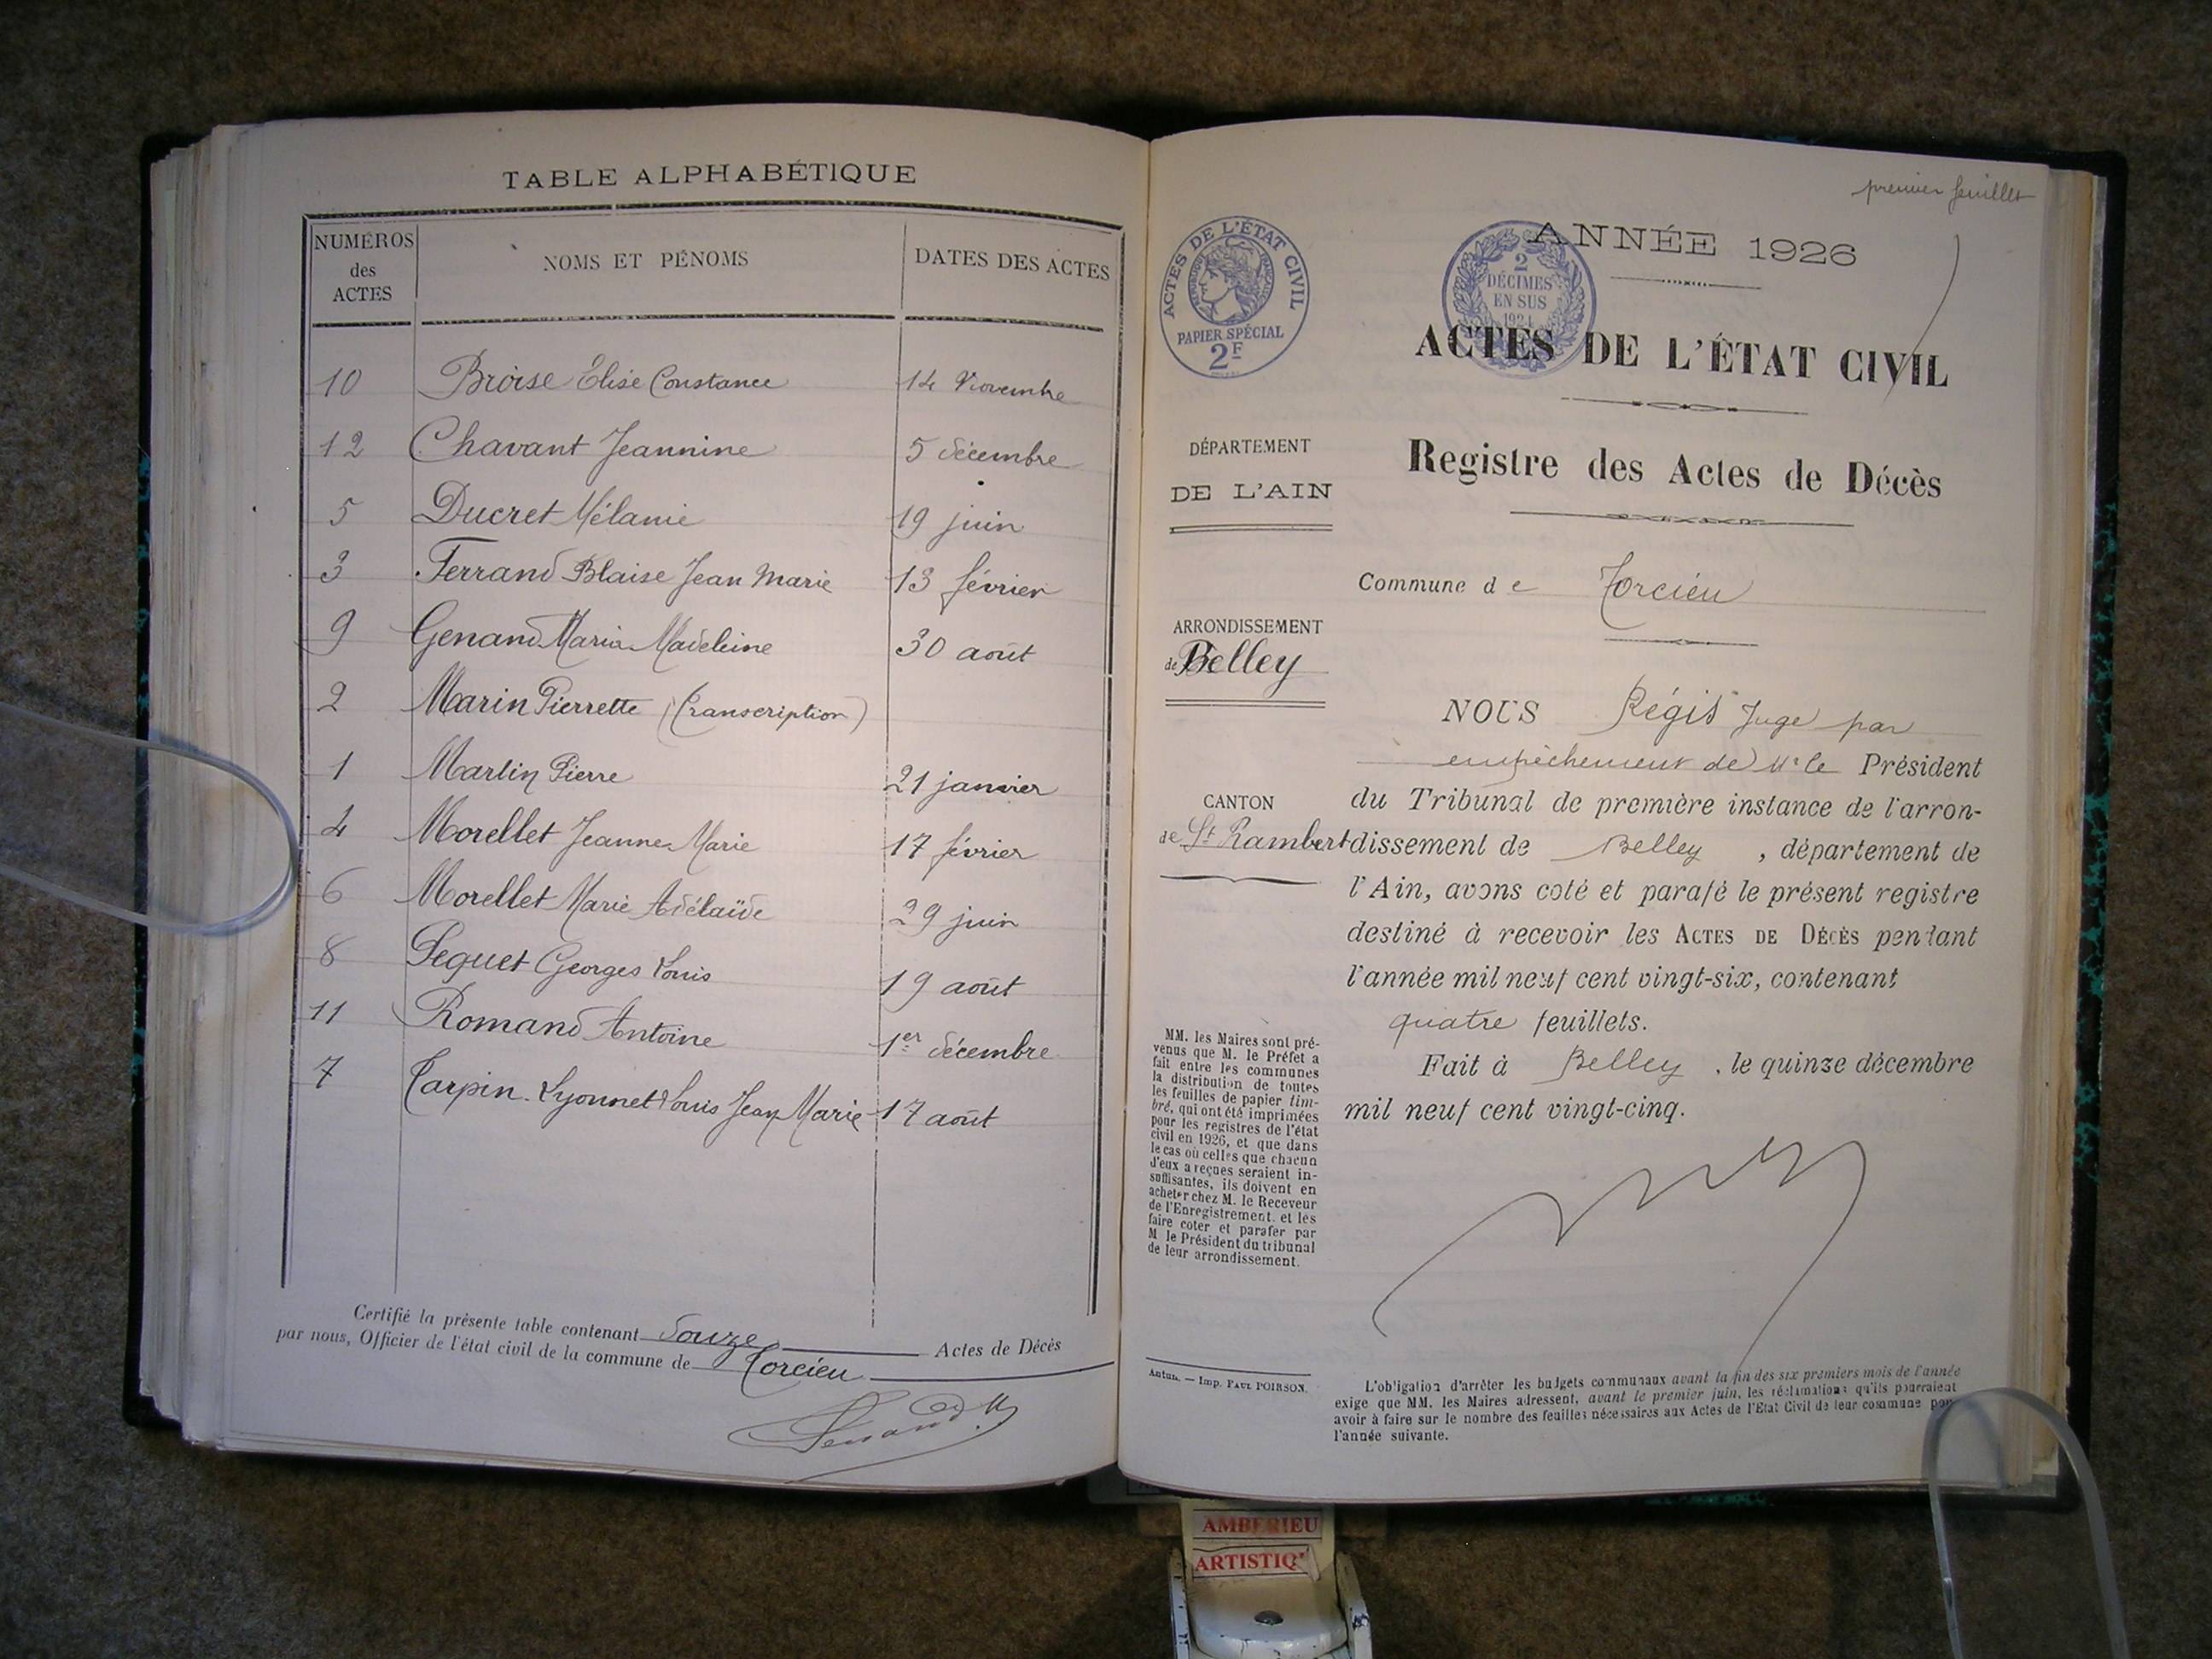 TABLE ALPHABÉTIQUE
NUMÉROS des ACTES
NOMS ET PÉNOMS
DATES DES ACTES
10 Broise Élise Constance 14 Novembre
12 Chavant Jeannine 5 décembre
5 Ducret Mélanie 19 juin
3 Ferrand Blaise Jean Marie 13 février
9 Genand Maria Madeleine 30 août
2 Marin Pierrette (Transcription)
1 Martin Pierre 21 janvier
4 Morellet Jeanne Marie 17 février
6 Morellet Marie Adélaïde 29 juin
8 Peguet Georges Louis 19 août
11 Romand Antoine 1er décembre
7 Tarpin-Lyonnet Louis Jean Marie 17 août
Certifié la présente table contenant douze Actes de Décès
par nous, Officier de l'état civil de la commune de Torcieu
premier feuillet
ACTES DE L'ÉTAT CIVIL
RÉPUBLIQUE FRANÇAISE
PAPIER SPÉCIAL
2F
2
DÉCIMES
EN SUS
1924
ANNÉE 1926
ACTES DE L'ÉTAT CIVIL
Registre des Actes de Décès
DÉPARTEMENT
DE L'AIN
Commune de Torcieu
ARRONDISSEMENT
de Belley
CANTON
de St Rambert
NOUS Régis Juge par
empêchement de Mr le Président
du Tribunal de première instance de l'arron-
dissement de Belley, département de
l'Ain, avons coté et parafé le présent registre
destiné à recevoir les ACTES DE DÉCÈS pendant
l'année mil neuf cent vingt-six, contenant
quatre feuillets.
Fait à Belley, le quinze décembre
mil neuf cent vingt-cinq.
MM. les Maires sont pré-
venus que M. le Préfet a
fait entre les communes
la distribution de toutes
les feuilles de papier tim-
bré, qui ont été imprimées
pour les registres de l'état
civil en 1926, et que dans
le cas où celles que chacun
d'eux a reçues seraient in-
suffisantes, ils doivent en
acheter chez M. le Receveur
de l'Enregistrement. et les
faire coter et parafer par
M le Président du tribunal
de leur arrondissement.
Autun. — Imp. PAUL POIRSON.
L'obligation d'arrêter les budgets communaux avant la fin des six premiers mois de l'année
exige que MM. les Maires adressent, avant le premier juin, les réclamations qu'ils pourraient
avoir à faire sur le nombre des feuilles nécessaires aux Actes de l'Etat Civil de leur commune pour
l'année suivante.
AMBERIEU
ARTISTIQ'